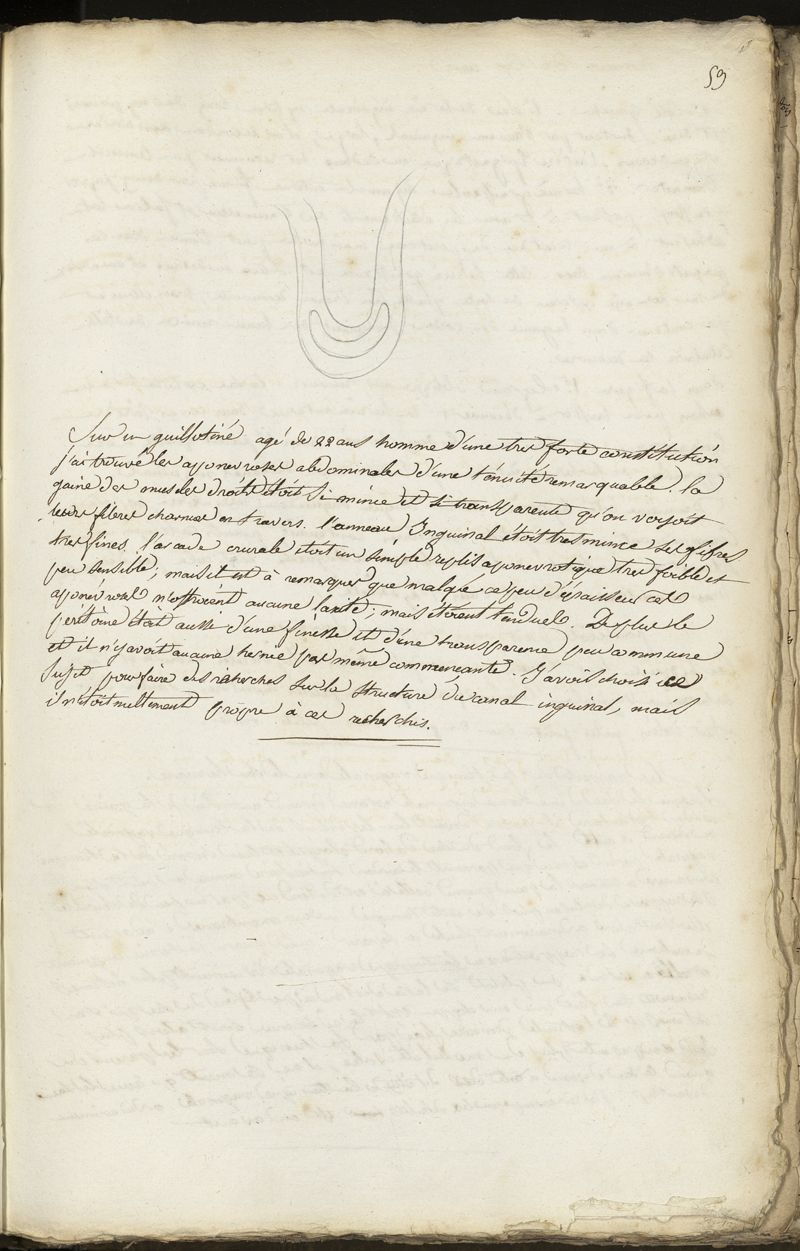 59
Sur un guillotiné agé de 22 ans homme d'une tres forte constitution
j'ai trouvé les aponevroses abdominales d'une ténuité remarquable. la
gaine des muscles droits étoit si mince et si transparente qu'on voyoit
leurs fibres charnues en travers. l'anneau Inguinal étoit tres mince ses
tres fines. l'arcade crurale étoit un simple replis aponevrotique tres foible et
peu sensible; mais il est à remarquer que malgré ce peu d'épaisseur ces
aponévroses n'offroient aucune laxité; mais étoient tendues. De plus le
péritoine étoit aussi d'une finesse et d'une transparence peu commune
et il n'y avoit aucune hernie pas même commencante. J'avois choisi ce
sujet pour faire des recherches sur la structure du canal inguinal, mais
il n'étoit nullement propre à ces recherches.